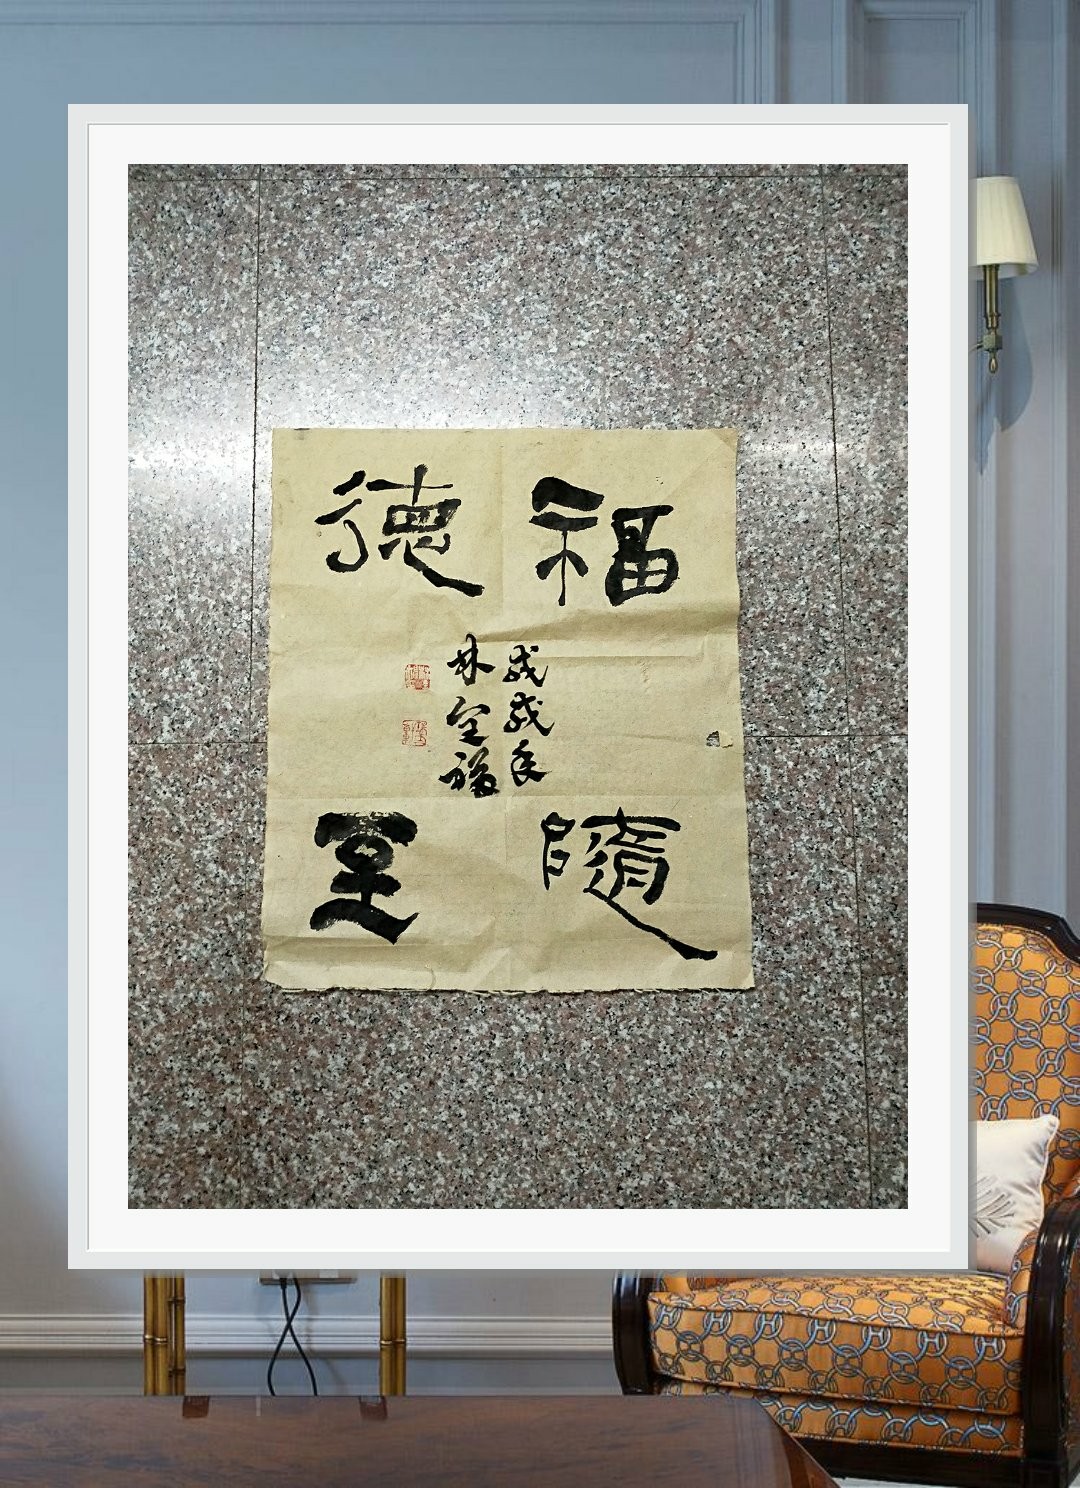 福隨
德至
戊戌年
林金福